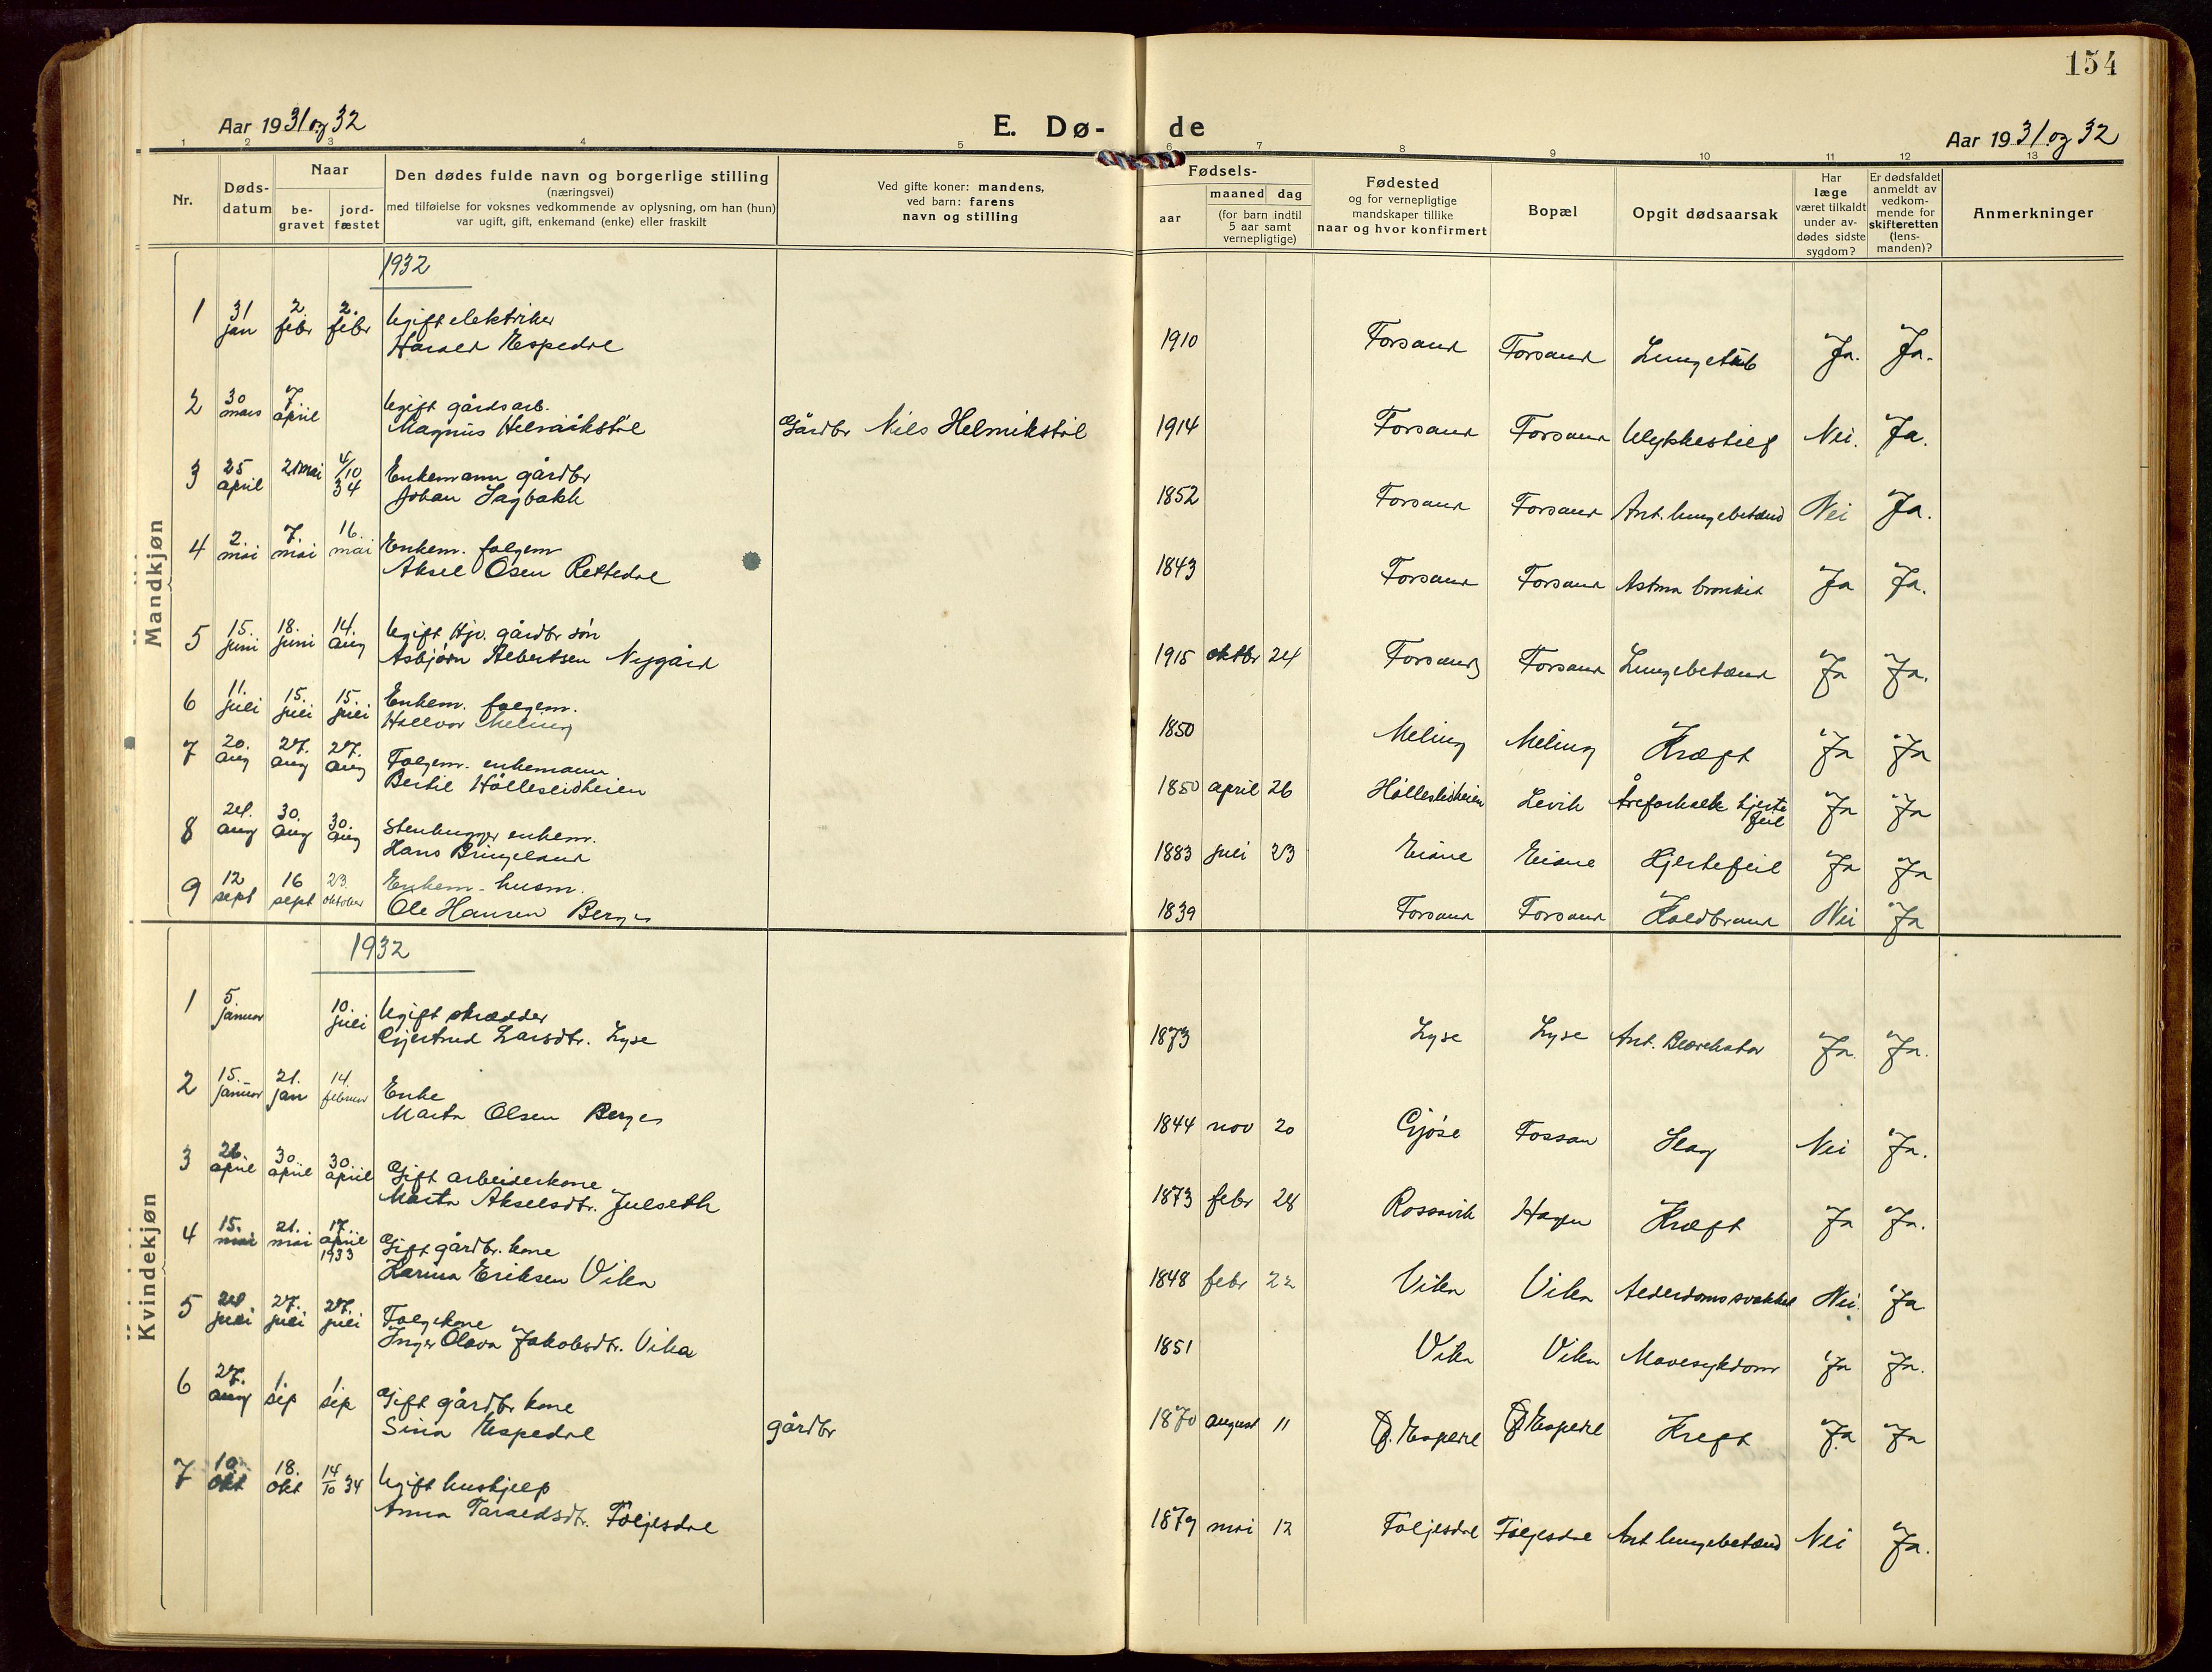 154
Aar 1931 og 32
E. Dø- de
Aar 1931 og 32
1 2 3 4 5 6 7 8 9 10 11 12 13
Nr.
Døds-
datum
Naar
be-
gravet
jord-
fæstet
Den dødes fulde navn og borgerlige stilling
(næringsvei)
med tilføielse for voksnes vedkommende av oplysning, om han (hun)
var ugift, gift, enkemand (enke) eller fraskilt
Ved gifte koner: mandens,
ved barn: farens
navn og stilling
Fødsels-
aar
maaned dag
(for barn indtil
5 aar samt
vernepligtige)
Fødested
og for vernepligtige
mandskaper tillike
naar og hvor konfirmert
Bopæl
Opgit dødsaarsak
Har
læge
været tilkaldt
under av-
dødes sidste
sygdom?
Er dødsfaldet
anmeldt av
vedkom-
mende for
skifteretten
(lens-
manden)?
Anmerkninger
Mandkjøn
1932
1 31 jan 2. febr 2. febr Ugift elektriker
Harald Espedal 1910 Forsand Forsand Lungetub Ja. Ja.
2 30 mars 7 april Ugift gårdsarb.
Magnus Helmikstøl Gårdbr Nils Helmikstøl 1914 Forsand Forsand Ulykkestilf Nei. Ja.
3 25 april 21 mai 4/10 34 Enkemann gårdbr
Johan Sagbakk 1852 Forsand Forsand Ant. lungebetænd Nei Ja.
4 2. mai 7. mai 16. mai Enkem. folgem
Aksel Olsen Rettedal 1843 Forsand Forsand Astma bronkit Ja Ja.
5 15. juni 18. juni 14. aug Ugift Hjv. gårdbr søn
Asbjørn Albertsen Nygård 1915 oktbr 24 Forsand Forsand Lungebetænd Ja Ja.
6 11. juli 15. juli 15. juli Enkem. folgem.
Hallvor Meling 1850 Meling Meling Kræft Ja Ja
7 20. aug 27. aug 27. aug Folgem. enkemann
Bertil Hølleslidheien 1850 april 26 Hølleslidheien Levik Åreforkalk hjerte
feil Ja Ja
8 24. aug 30. aug 30. aug Stenhugger enkem.
Hans Bringeland 1883 juli 23 Eiane Eiane Hjertefeil Ja Ja
9 12 sept 16 sept 23. oktober Enkem. husm.
Ole Hansen Berge 1839 Forsand Forsand Koldbrand Nei Ja
Kvindekjøn
1932
1 5 januar 10. juli Ugift skrædder
Gjertrud Larsdtr. Lyse 1873 Lyse Lyse Ant. Blærekatar Ja. Ja.
2 15. januar 21. jan 14. februar Enke
Marta Olsen Berge 1844 nov 20 Gjøse Fossan Slag Nei Ja.
3 26. april 30. april 30. april Gift arbeiderkone
Marta Akselsdtr. Julseth 1873 febr 28 Rossavik Hagen Kræft Ja Ja.
4 15. mai 21. mai 17. april 1933 Gift gårdbr. kone
Karina Eriksen Vika 1848 febr 22 Vika Vika Alderdomssvakhet Nei. Ja
5 20 juli 27. juli 27. juli Folgekone
Inger Olava Jakobsdtr. Vika 1851 Vika Vika Mavesykdom Ja Ja.
6 27. aug 1. sep 1. sep Gift gårdbr kone
Sina Espedal gårdbr 1870 august 11 Ø. Espedal Ø. Espedal Kreft Ja Ja
7 10 okt 18. okt 14/10 34 Ugift hushjelp
Anna Taraldsdtr. Føljesdal 1879 mai 12 Føljesdal Føljesdal Ant lungebetænd Nei Ja.